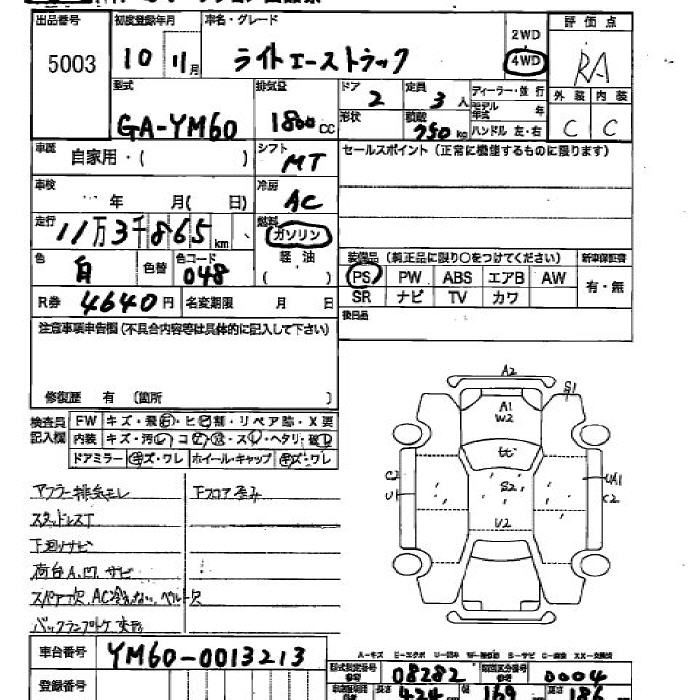 出品番号 5003
初度登録年月 10 11月
車名・グレード ライトエーストラック
2WD
4WD
評価点 RA
外装 内装
C C
型式 GA-YM60
排気量 1800cc
ドア 2
定員 3人
形状
積載 750kg
ディーラー・並行
モデル年式 年
ハンドル 左・右
車歴 自家用・( )
シフト MT
セールスポイント (正常に機能するものに限ります)
車検 年 月( 日)
冷房 AC
走行 11万3千865km
燃料 ガソリン
軽油
( )
色 白 色替 色コード 048
装備品 (純正品に限り○をつけてください) 新車保証書
PS PW ABS エアB AW 有・無
SR ナビ TV カワ
R券 4640円 名変期限 月 日
後日品
注意事項申告欄(不具合内容等は具体的に記入して下さい)
修復歴 有 (箇所 )
検査員記入欄
FW キズ・飛石・ヒビ割・リペア跡・X要
内装
ドアミラー キズ・ワレ ホイール・キャップ キズ・ワレ
マフラー排気モレ 下フロア歪み
スタッドレスT
下廻りサビ
荷台A.凹.サビ
スペア欠.AC冷えない.ベルト欠
バックランプ
A2
S1
A1
W2
S2
V2
C2
U1
UA1
C2
車台番号 YM60-0013213
A-キズ E-エクボ U-凹 W-補修跡 S-サビ C-腐食 XX-交換済
登録番号
型式指定番号 08282 類別区分番号 0004
長さ 424cm 幅 169cm 高さ 186